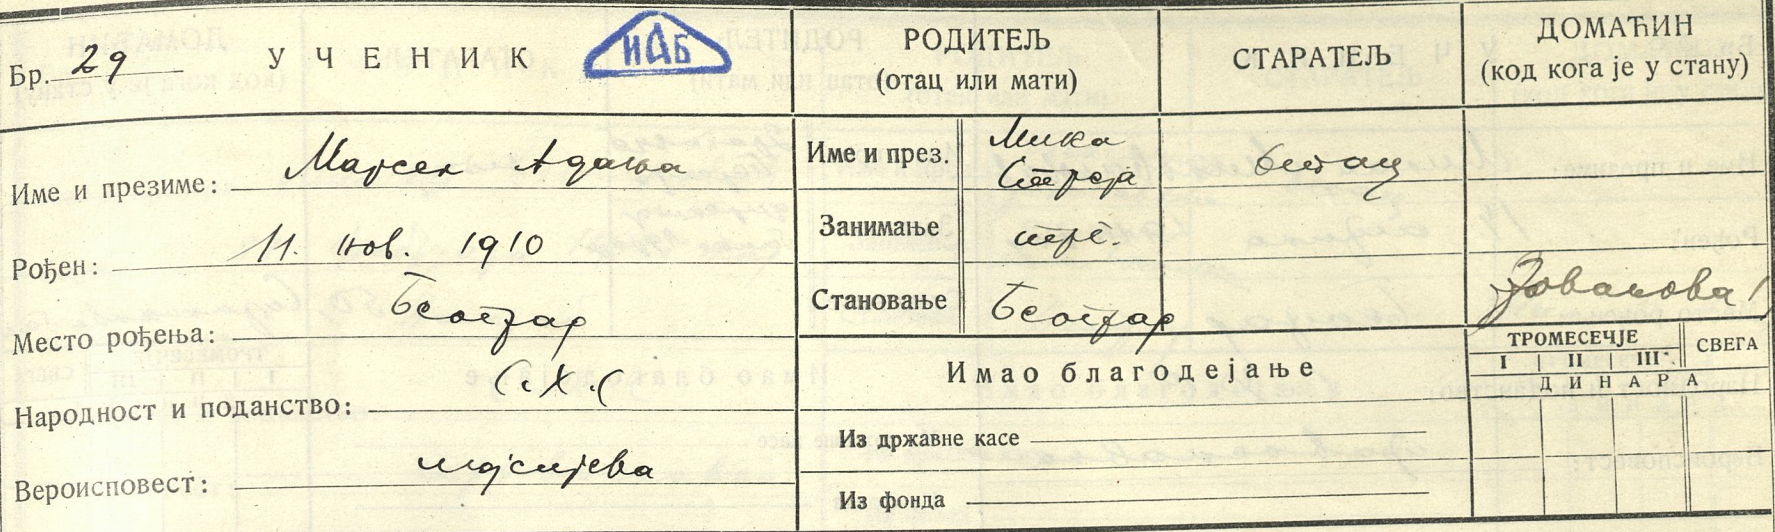 Бр. 29 УЧЕНИК
ИАБ
РОДИТЕЉ
(отац или мати)
СТАРАТЕЉ
ДОМАЋИН
(код кога је у стану)
Име и презиме: Марсел Адања
Рођен: 11. нов. 1910
Место рођења: Београд
Народност и поданство: С.Х.С
Вероисповест: мојсијева
Име и през. Мика
отац
Занимање трг.
Становање Београд
Јованова
Имао благодејање
Из државне касе
Из фонда
ТРОМЕСЕЧЈЕ
I II III
СВЕГА
ДИНАРА